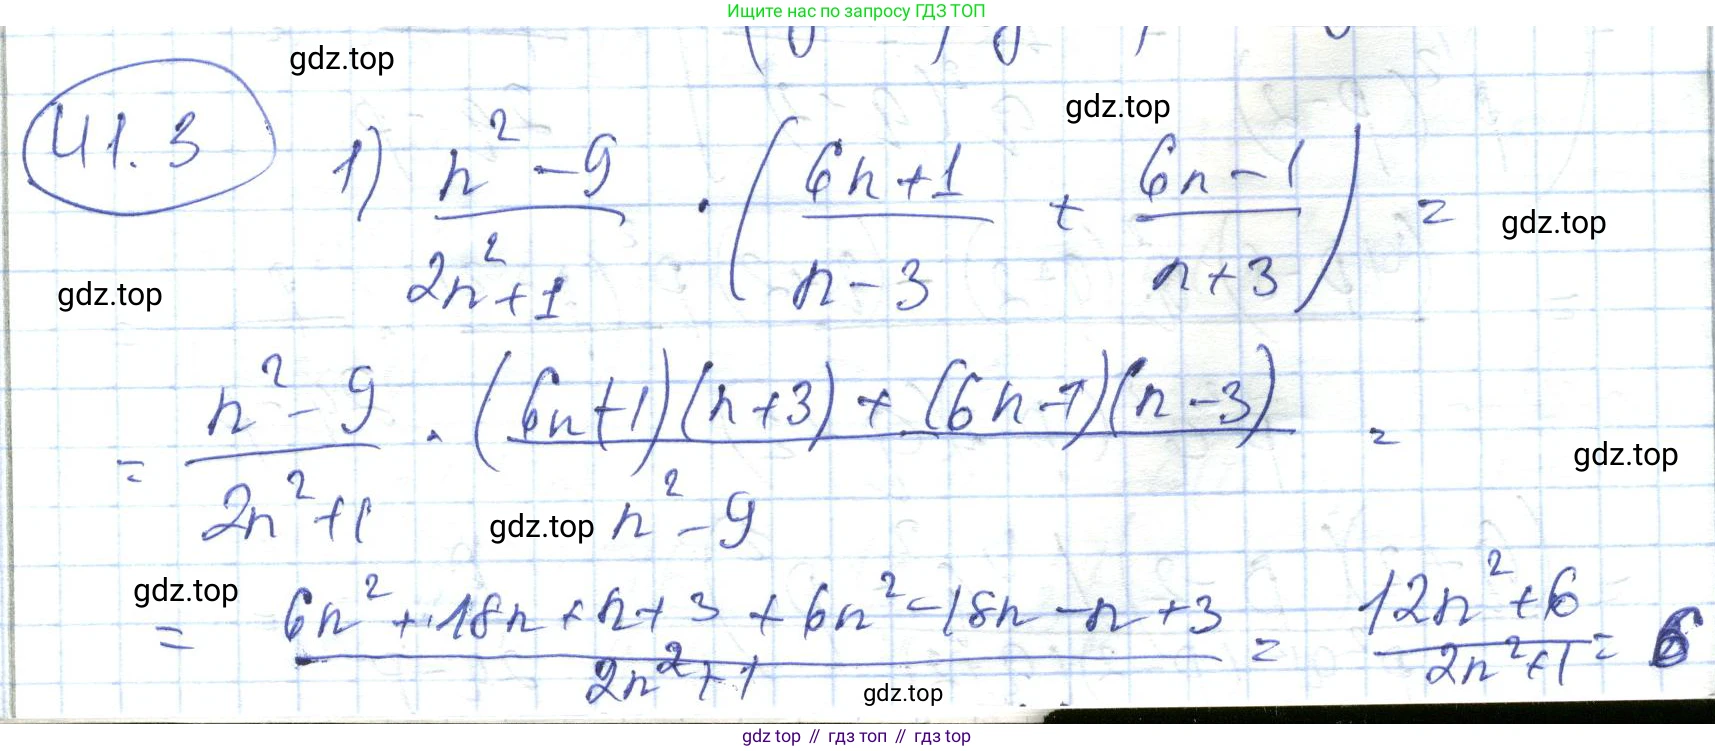 Ищите нас по запросу ГДЗ ТОП
gdz.top
gdz.top
41.3 1) (n² - 9)/(2n² + 1) · ((6n + 1)/(n - 3) + (6n - 1)/(n + 3)) =
gdz.top
gdz.top
= (n² - 9)/(2n² + 1) · ((6n + 1)(n + 3) + (6n - 1)(n - 3))/(n² - 9) =
gdz.top
gdz.top
gdz.top
= (6n² + 18n + n + 3 + 6n² - 18n - n + 3)/(2n² + 1) = (12n² + 6)/(2n² + 1) = 6
gdz.top
gdz top // гдз топ // gdz top